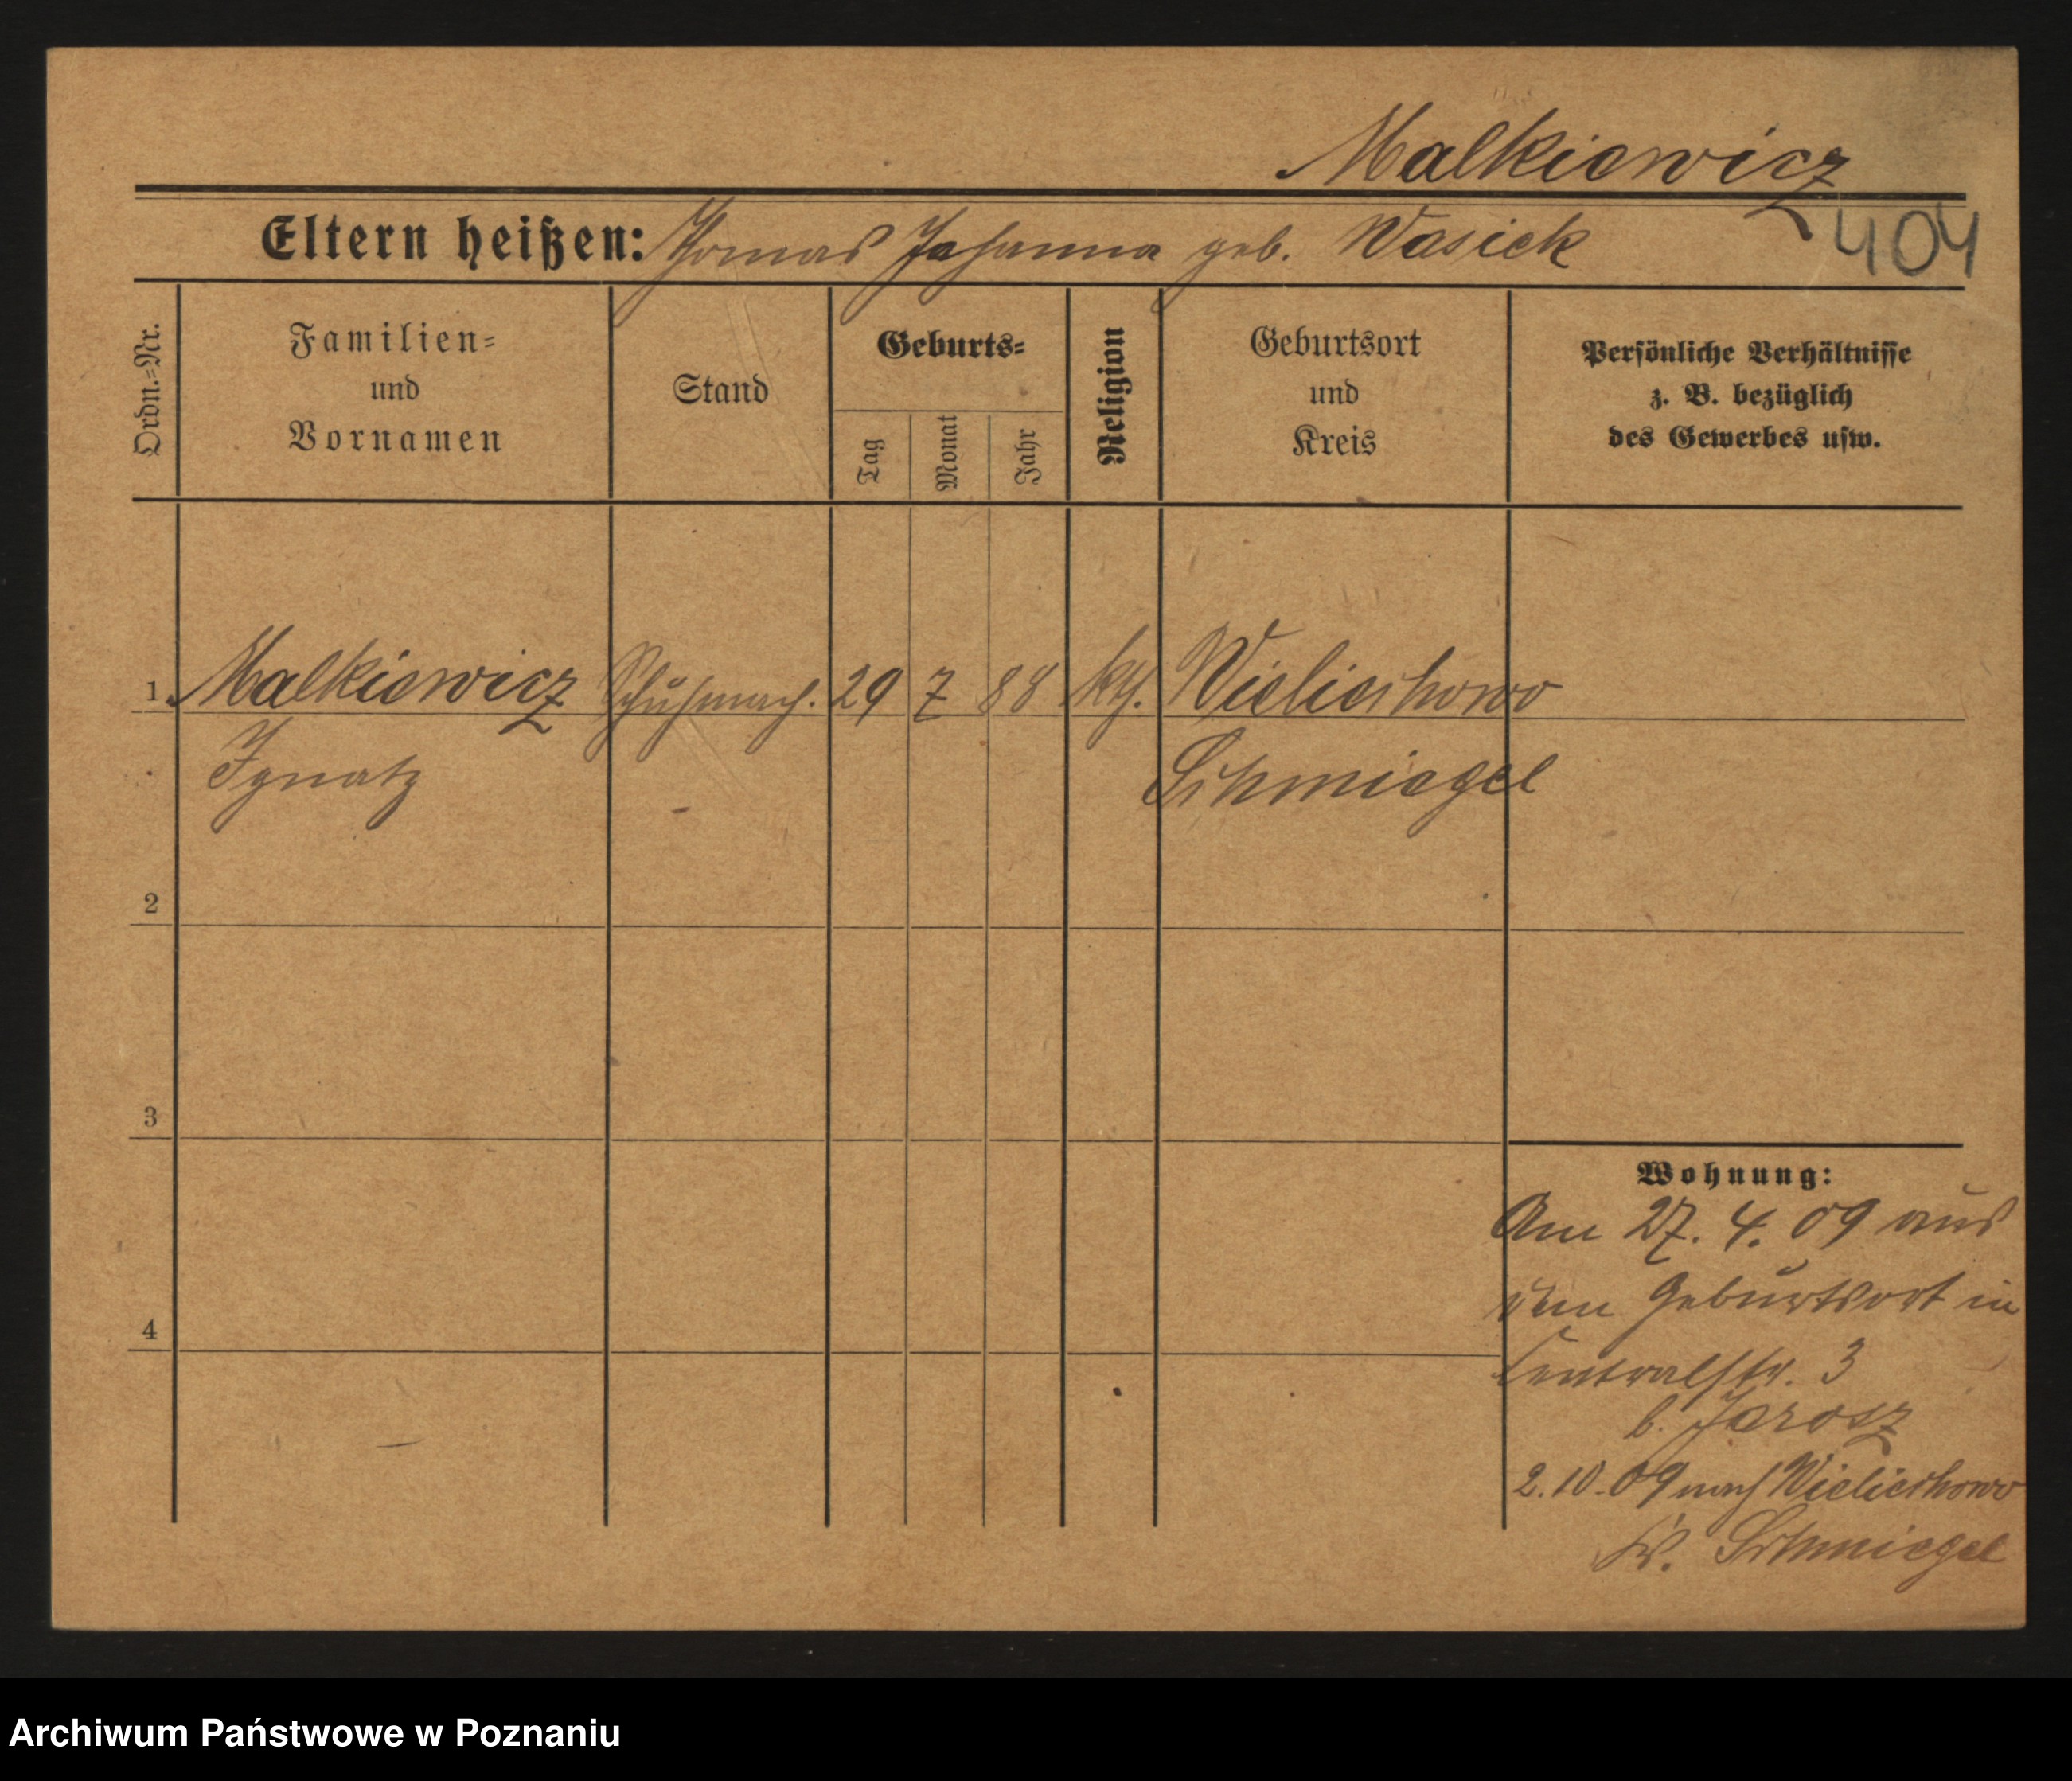 Malkiewicz
404
Eltern heißen: Thomas Johanna geb. Wasiek
Ordn.-Nr.
Familien-
und
Vornamen
Stand
Geburts-
Tag
Monat
Jahr
Religion
Geburtsort
und
Kreis
Persönliche Verhältnisse
z. B. bezüglich
des Gewerbes usw.
1 Malkiewicz Schuhmach. 29 7 88 kth. Wielichowo
Ignatz Schmiegel
2
3
Wohnung:
Am 27. 4. 09 aus
dem Geburtsort in
4
Centralstr. 3
b. Jarosz
2. 10. 09 nach Wielichowo
Kr. Schmiegel
Archiwum Państwowe w Poznaniu